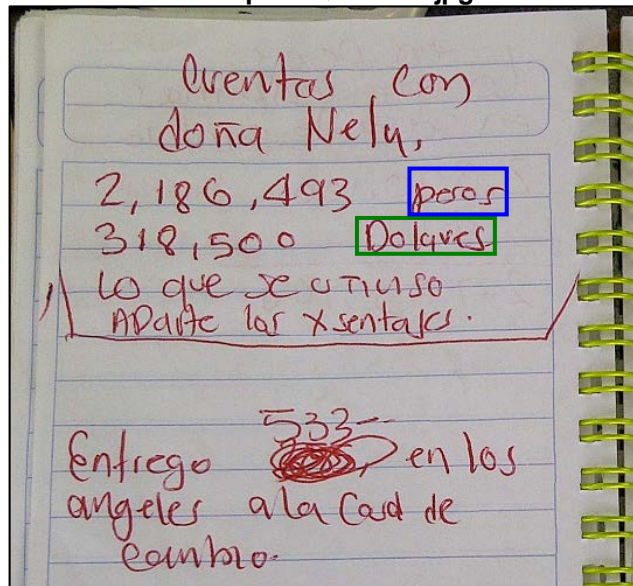 Cuentas con
doña Nely,
2,186,493 pesos
318,500 Dolares
Lo que se
APArte las Xsentajes.
533--
Entrego en los
angeles a la Casa de
Cambio.